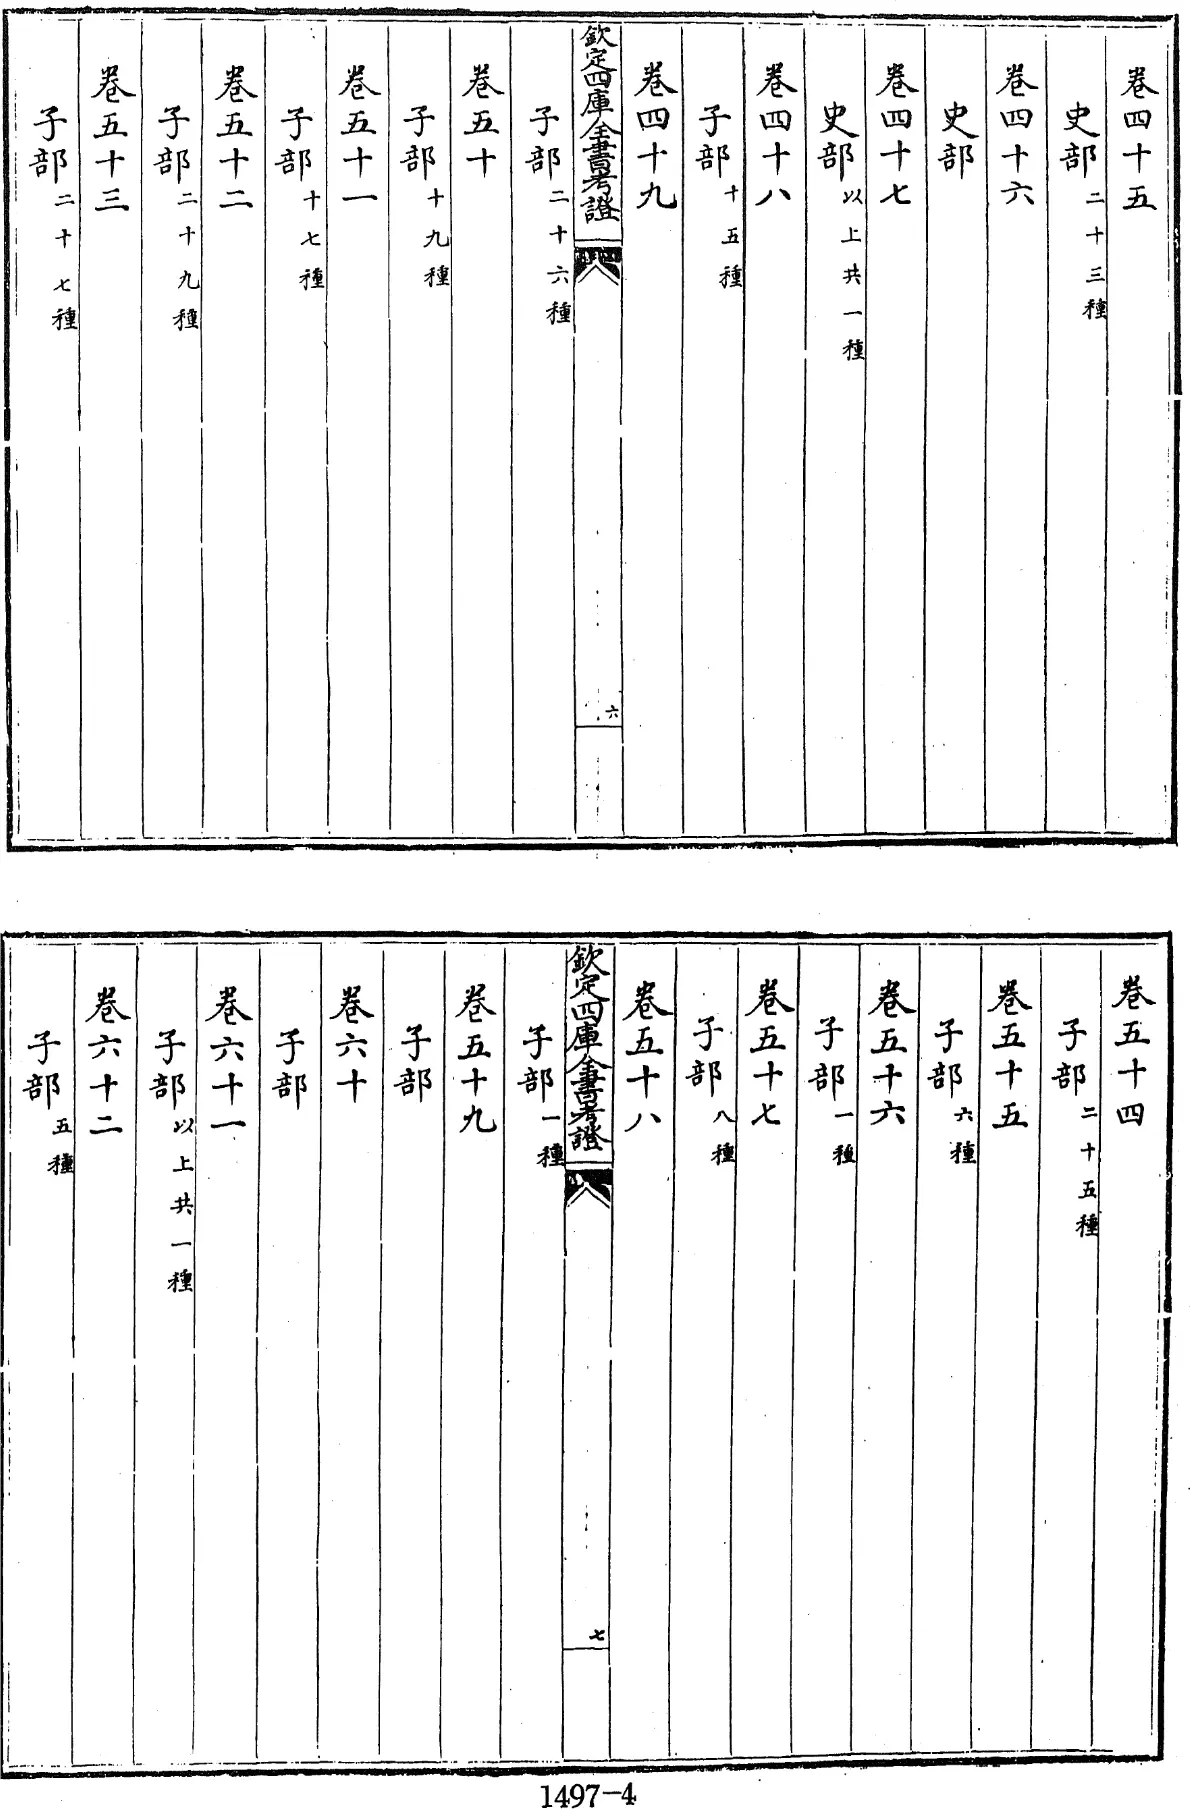 卷四十五
史部二十三種
卷四十六
史部
卷四十七
史部以上共一種
卷四十八
子部十五種
卷四十九
欽定四庫全書考證
六
子部二十六種
卷五十
子部十九種
卷五十一
子部十七種
卷五十二
子部二十九種
卷五十三
子部二十七種
卷五十四
子部二十五種
卷五十五
子部六種
卷五十六
子部一種
卷五十七
子部八種
卷五十八
欽定四庫全書考證
七
子部一種
卷五十九
子部
卷六十
子部
卷六十一
子部以上共一種
卷六十二
子部五種
1497-4